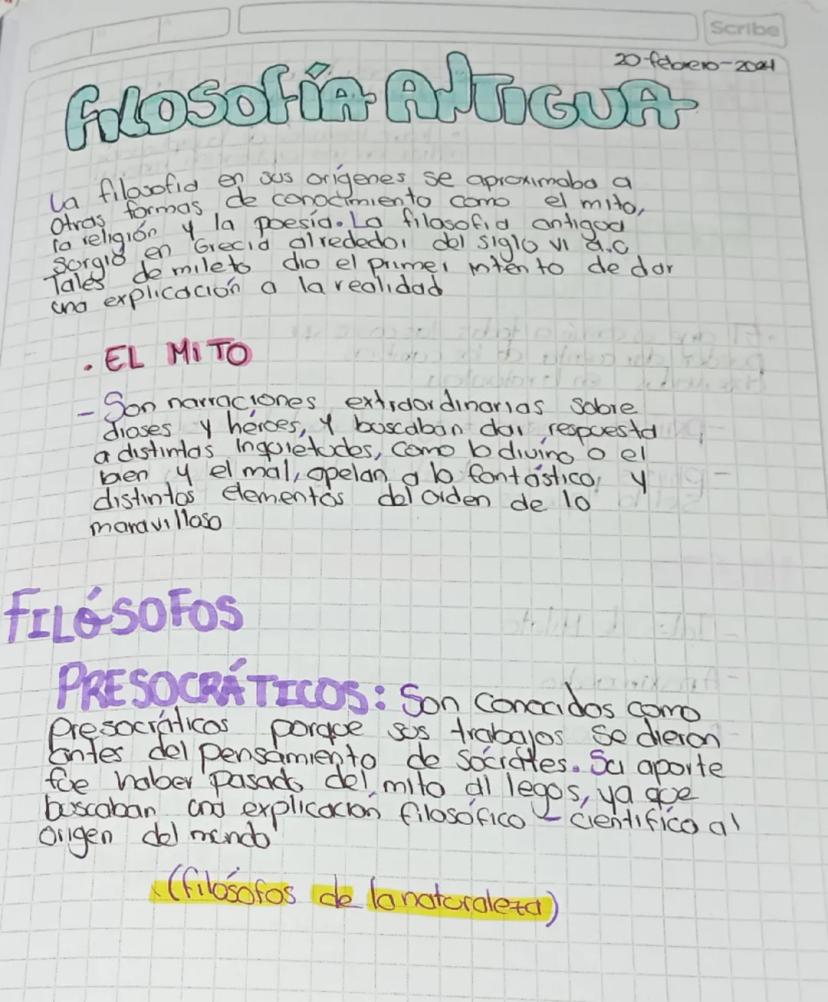 Scribe
20-febrero-2024
FILOSOFÍA ANTIGUA
La filosofia en sus orígenes se aproximaba a
otras formas de conocimiento como el mito,
la religión y la poesía. La filosofia antigua
surgió en Grecia alrededor del siglo VI a.C
Tales de mileto dio el primer intento de dar
una explicación a la realidad
. EL MITO
- Son narraciones extraordinarias sobre
dioses y héroes, y buscaban dar respuesta
a distintas inquietudes, como lo divino o el
bien y el mal, apelan a lo fantástico, y
distintos elementos del orden de lo
maravilloso
FILÓSOFOS
PRESOCRÁTICOS: Son conocidos como
presocráticos porque sus trabajos se dieron
antes del pensamiento de sócrates. Su aporte
fue haber pasado del mito al legos, ya que
buscaban una explicación filosófico - científico al
origen del mundo
(filósofos de la naturaleza)